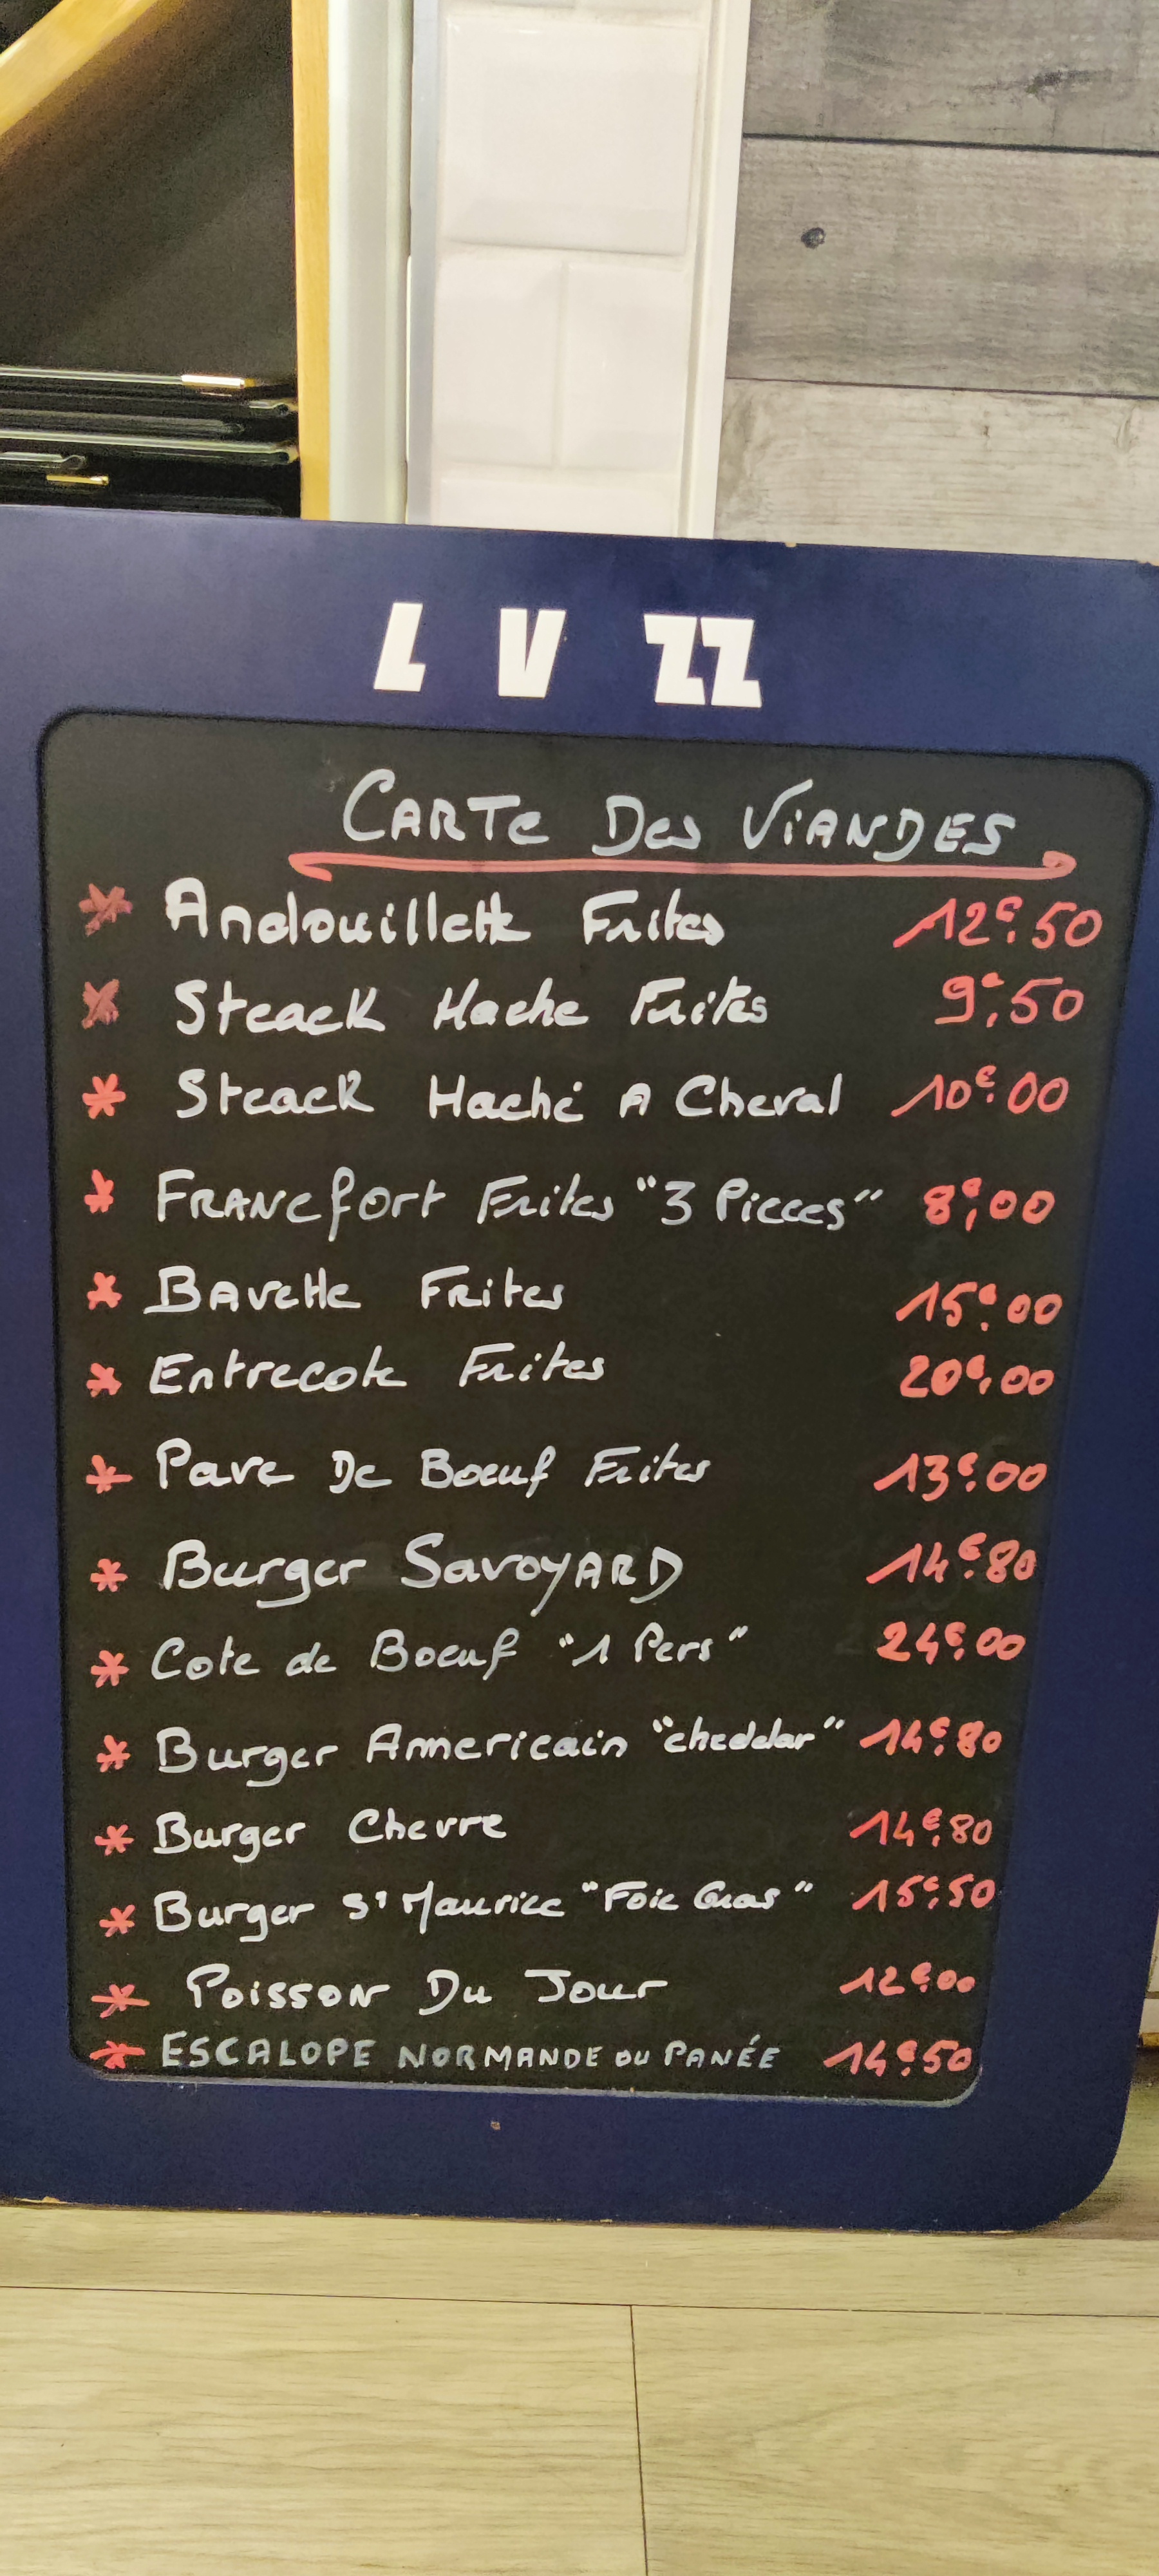 L V ZZ
CARTe Des ViANDES
* Andouillette Frites 12€.50
* Steack Hache Frites 9€.50
* Steack Haché A Cheval 10€.00
* FRANCfort Frites "3 Pieces" 8€.00
* BAvette FRites 15€.00
* Entrecote Frites 20€.00
* Pave De Boeuf Frites 13€.00
* Burger SavoyARD 14€.80
* Cote de Boeuf "1 Pers" 24€.00
* Burger Americain "cheddar" 14€.80
* Burger Chevre 14€.80
* Burger St Maurice "Foie Gras" 15€.50
* Poisson Du Jour 12€.00
* ESCALOPE NORMANDE OU PANÉE 14€.50